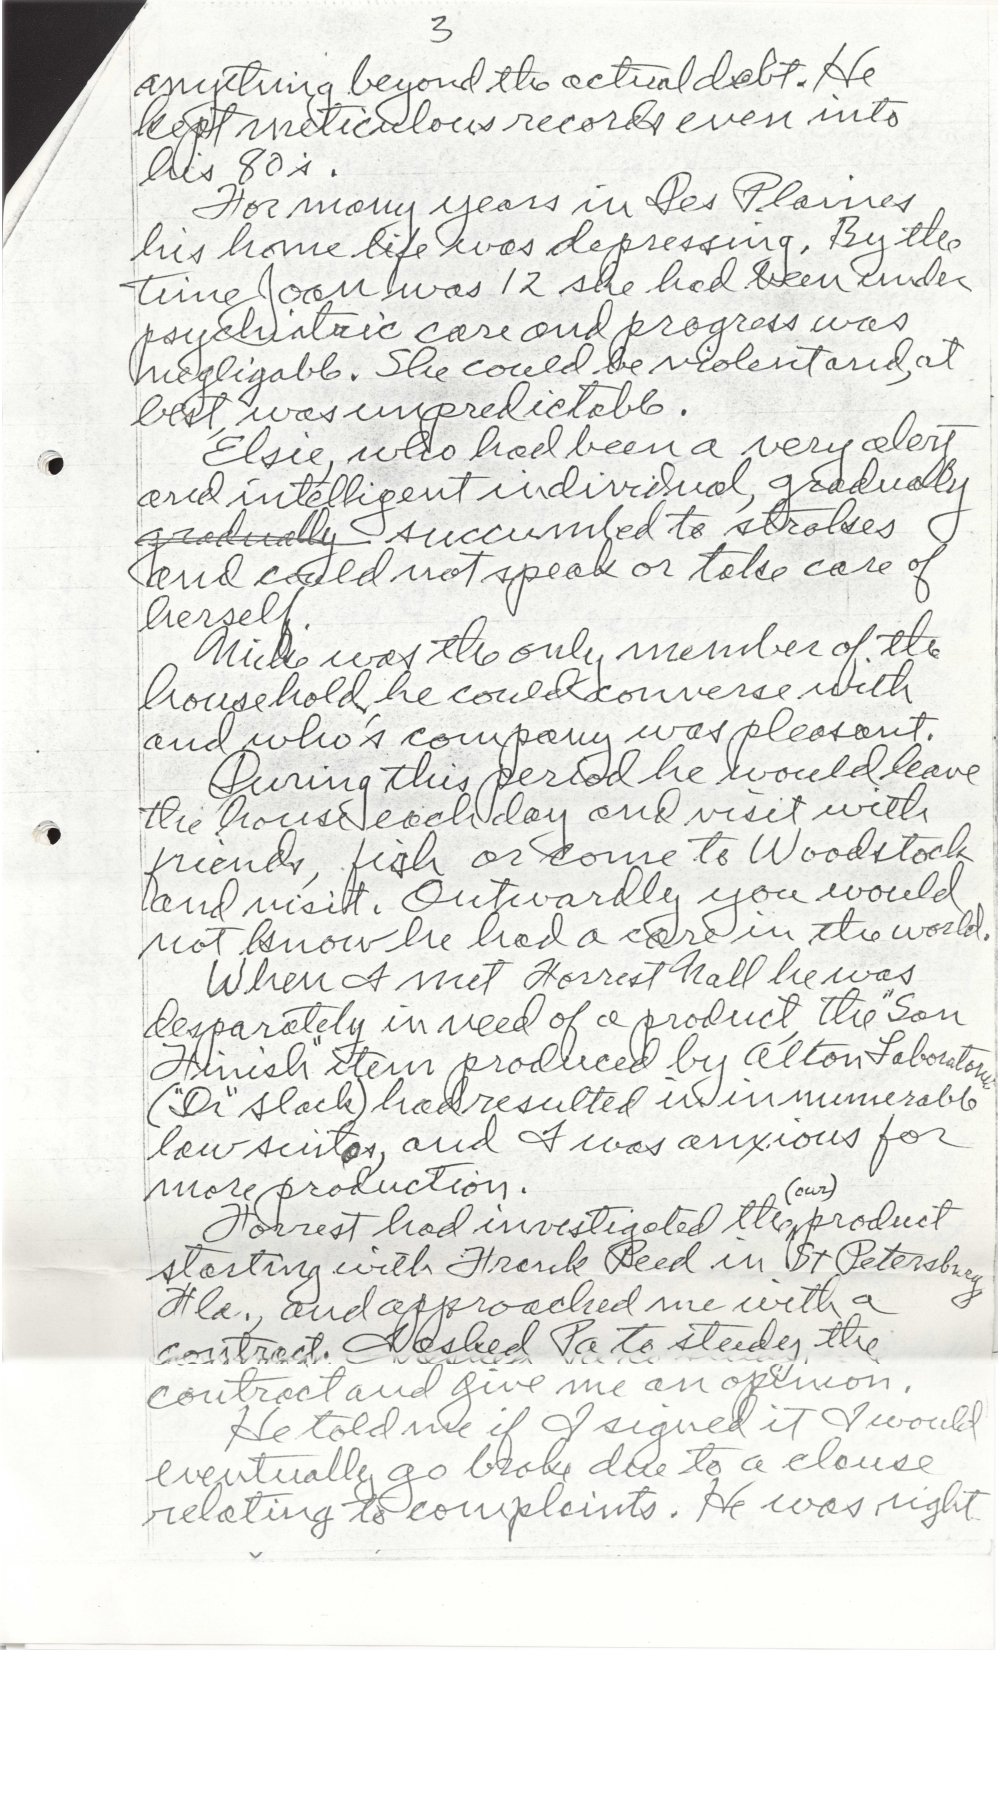 3
anything beyond the actual debt. He
kept meticulous records even into
his 80's.
For many years in Des Plaines
his home life was depressing. By the
time Joan was 12 she had been under
psychiatric care and progress was
negligable. She could be violent and, at
best, was unpredictable.
Elsie, who had been a very alert
and intelligent individual, gradually
gradually succumbed to strokes
and could not speak or take care of
herself.
was the only member of the
household he could converse with
and who's company was pleasant.
During this period he would leave
the house each day and visit with
friends, fish or come to Woodstock
and visit. Outwardly you would
not know he had a care in the world.
When I met Forrest Nall he was
desparately in need of a product, the "San
Finish" item produced by Alton Laboratories
("Di" Slack) had resulted in innumerable
law suits, and I was anxious for
more production.
(our)
Forrest had investigated the product
starting with Frank Reed in St Petersburg
Fla., and approached me with a
contract. I asked Pa to study the
contract and give me an opinion.
He told me if I signed it I would
eventually go broke due to a clause
relating to complaints. He was right